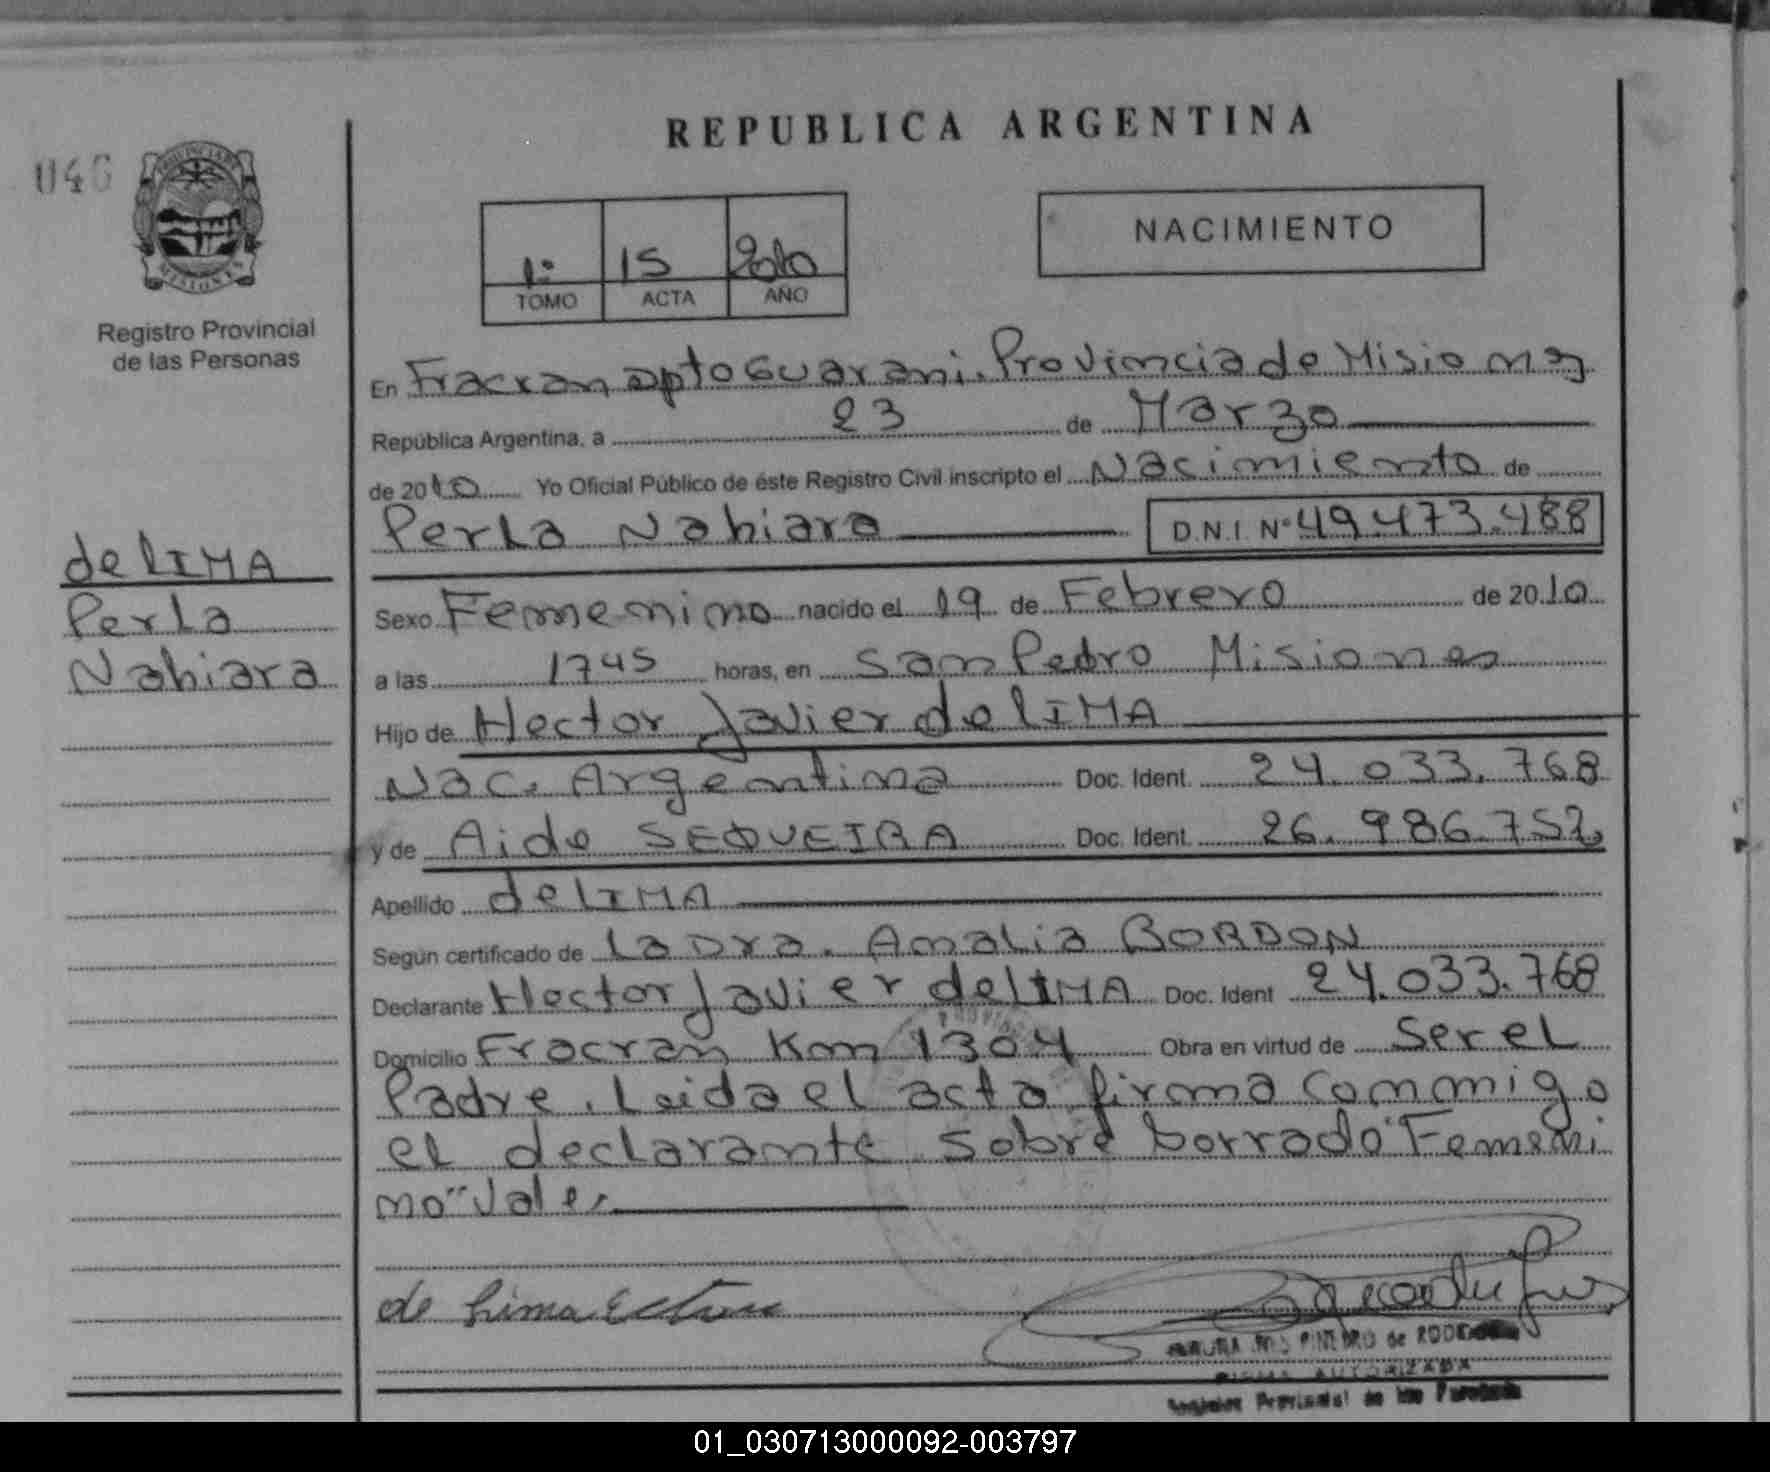 REPUBLICA ARGENTINA
046
PROVINCIA DE
MISIONES
Registro Provincial
de las Personas
1º 15 2010
TOMO ACTA AÑO
NACIMIENTO
En Fracran Dpto Guarani. Provincia de Misiones
República Argentina, a 23 de Marzo
de 2010 Yo Oficial Público de éste Registro Civil inscripto el Nacimiento de
Perla Nahiara D.N.I. Nº 49.473.488
de LIMA
Perla
Nahiara
Sexo Femenino nacido el 19 de Febrero de 2010
a las 1745 horas, en San Pedro Misiones
Hijo de Hector Javier de LIMA
Nac. Argentina Doc. Ident. 24.033.768
y de Aide SEQUEIRA Doc. Ident. 26.986.752
Apellido de LIMA
Según certificado de La Dra. Amalia BORDON
Declarante Hector Javier de LIMA Doc. Ident 24.033.768
Domicilio Fracran Km 1304 Obra en virtud de Ser el
Padre. Leida el acta firma conmigo
el declarante sobre borrado "Femeni
no" Vale.
de Lima
PINEIRO de
AUTORIZADA
Registro Provincial de las Personas
01_030713000092-003797